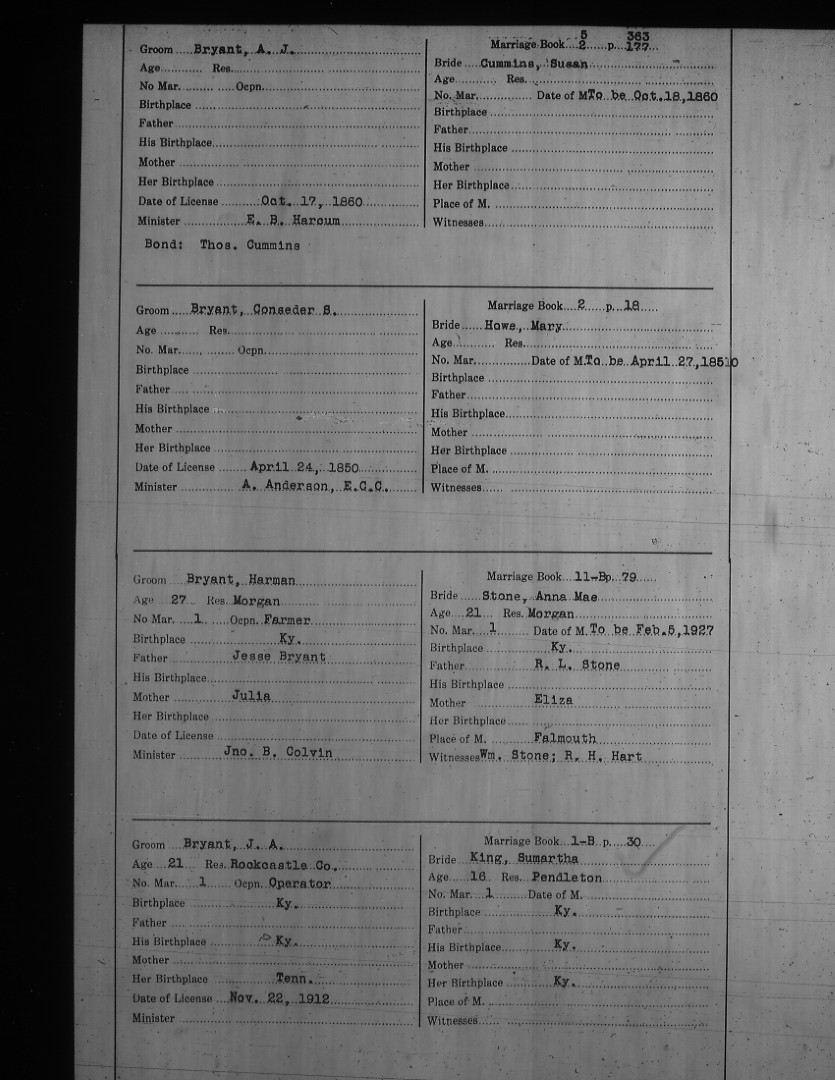 Groom Bryant, A. J.
Age Res.
No Mar. Ocpn.
Birthplace
Father
His Birthplace
Mother
Her Birthplace
Date of License Oct. 17, 1860
Minister E. B. Harcum
Bond: Thos. Cummins
5 363
Marriage Book 2 p. 177
Bride Cummins, Susan
Age Res.
No. Mar. Date of M To be Oct. 18, 1860
Birthplace
Father
His Birthplace
Mother
Her Birthplace
Place of M.
Witnesses
Groom Bryant, Conseder S.
Age Res.
No. Mar. Ocpn.
Birthplace
Father
His Birthplace
Mother
Her Birthplace
Date of License April 24, 1850
Minister A. Anderson, E.C.C.
Marriage Book 2 p. 18
Bride Howe, Mary
Age Res.
No. Mar. Date of M. To be April 27, 1850
Birthplace
Father
His Birthplace
Mother
Her Birthplace
Place of M.
Witnesses
Groom Bryant, Harman
Age 27 Res. Morgan
No Mar. 1 Ocpn. Farmer
Birthplace Ky.
Father Jesse Bryant
His Birthplace
Mother Julia
Her Birthplace
Date of License
Minister Jno. B. Colvin
Marriage Book 11-B p. 79
Bride Stone, Anna Mae
Age 21 Res. Morgan
No. Mar. 1 Date of M. To be Feb. 5, 1927
Birthplace Ky.
Father R. L. Stone
His Birthplace
Mother Eliza
Her Birthplace
Place of M. Falmouth
Witnesses Wm. Stone; R. H. Hart
Groom Bryant, J. A.
Age 21 Res. Rockcastle Co.
No. Mar. 1 Ocpn. Operator
Birthplace Ky.
Father
His Birthplace Ky.
Mother
Her Birthplace Tenn.
Date of License Nov. 22, 1912
Minister
Marriage Book 1-B p. 30
Bride King, Sumartha
Age 16 Res. Pendleton
No. Mar. 1 Date of M.
Birthplace Ky.
Father
His Birthplace Ky.
Mother
Her Birthplace Ky.
Place of M.
Witnesses